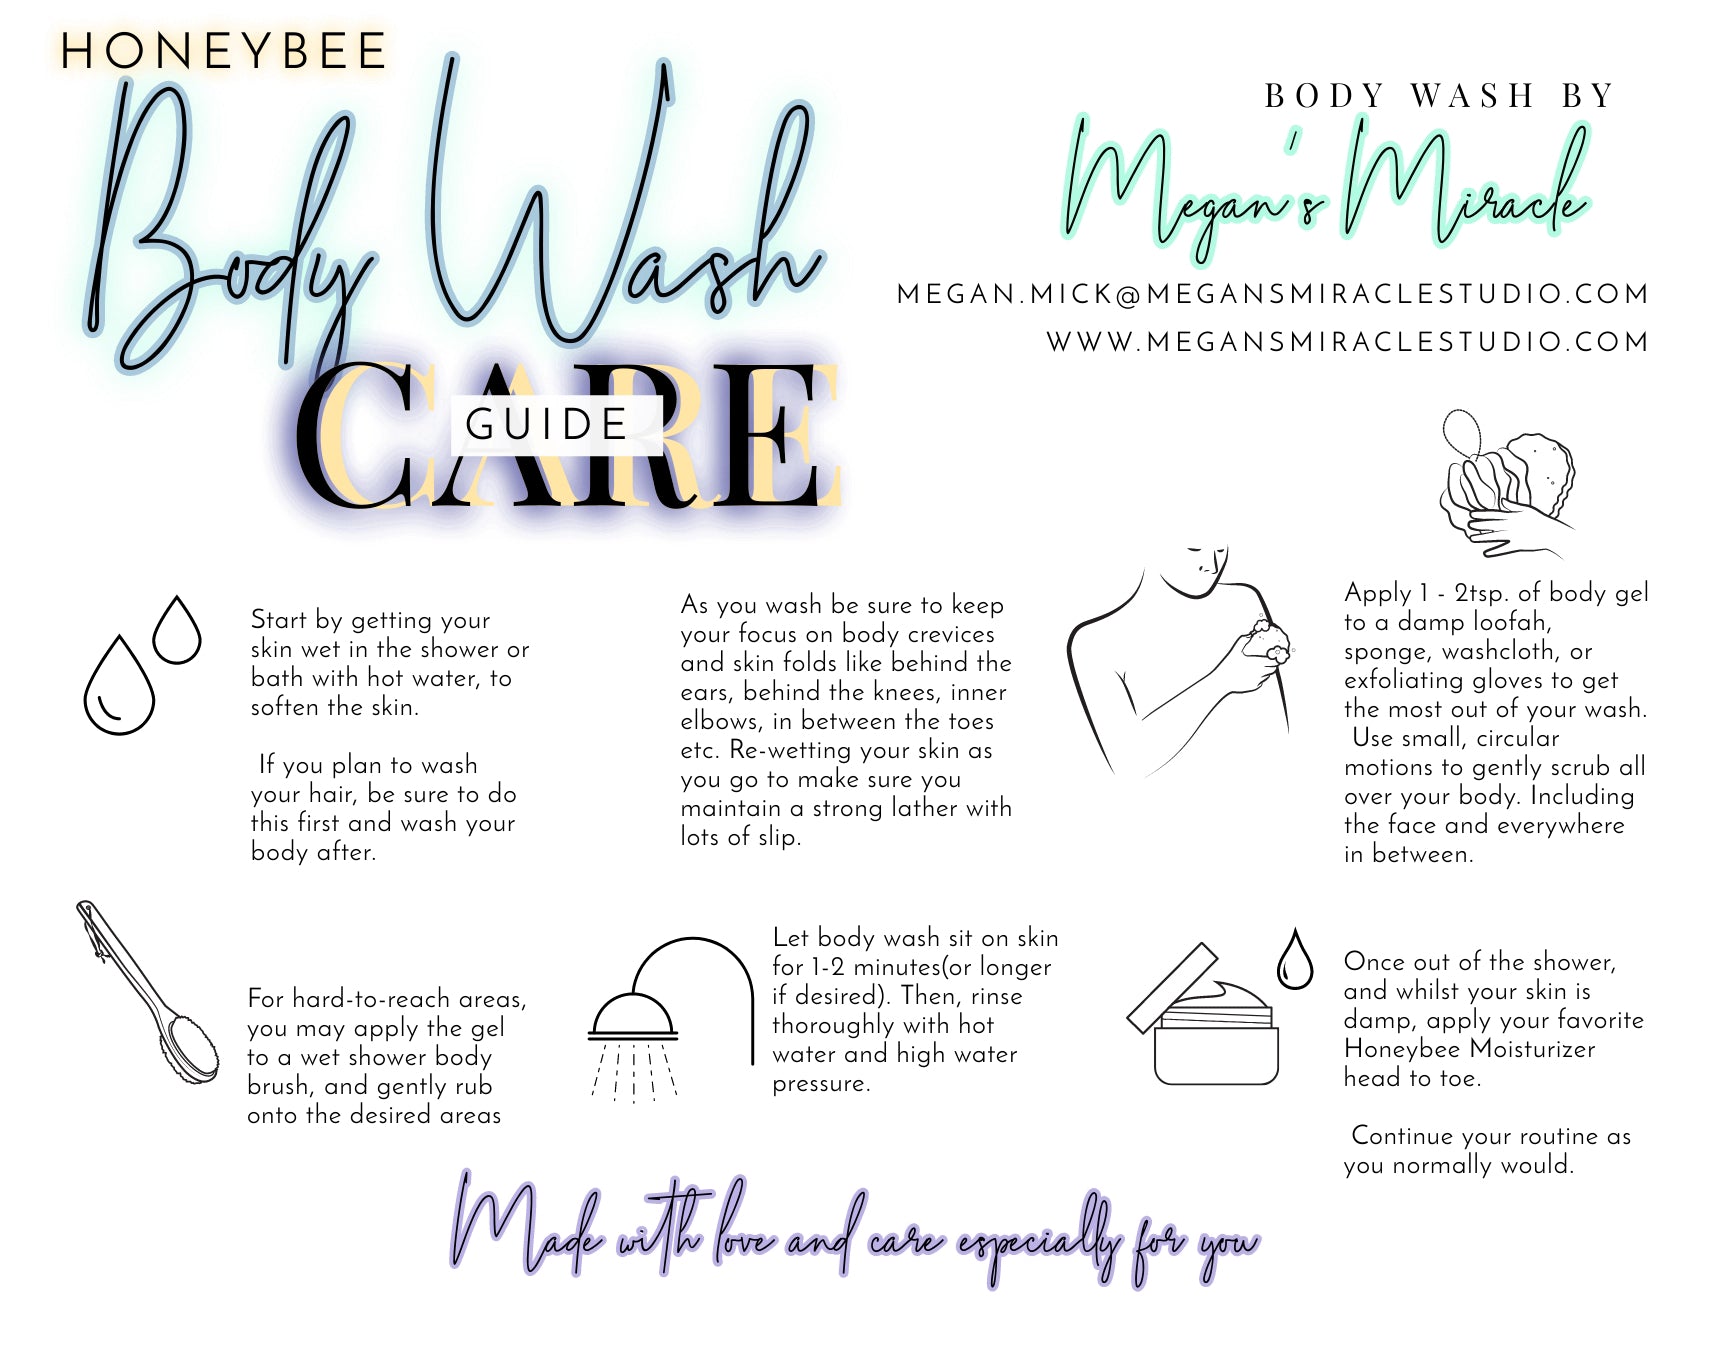 HONEYBEE
Body Wash
CARE
GUIDE
BODY WASH BY
Megan's Miracle
MEGAN.MICK@MEGANSMIRACLESTUDIO.COM
WWW.MEGANSMIRACLESTUDIO.COM
Start by getting your
skin wet in the shower or
bath with hot water, to
soften the skin.
If you plan to wash
your hair, be sure to do
this first and wash your
body after.
As you wash be sure to keep
your focus on body crevices
and skin folds like behind the
ears, behind the knees, inner
elbows, in between the toes
etc. Re-wetting your skin as
you go to make sure you
maintain a strong lather with
lots of slip.
Apply 1 - 2tsp. of body gel
to a damp loofah,
sponge, washcloth, or
exfoliating gloves to get
the most out of your wash.
Use small, circular
motions to gently scrub all
over your body. Including
the face and everywhere
in between.
For hard-to-reach areas,
you may apply the gel
to a wet shower body
brush, and gently rub
onto the desired areas
Let body wash sit on skin
for 1-2 minutes(or longer
if desired). Then, rinse
thoroughly with hot
water and high water
pressure.
Once out of the shower,
and whilst your skin is
damp, apply your favorite
Honeybee Moisturizer
head to toe.
Continue your routine as
you normally would.
Made with love and care especially for you